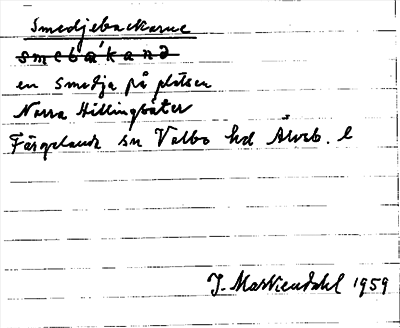 Smedjebackarne
smebákanə
en smedja på platsen
Norra Hillingsäter
Färgelanda sn Valbo hd Älvsb. l
J. Markendahl 1959